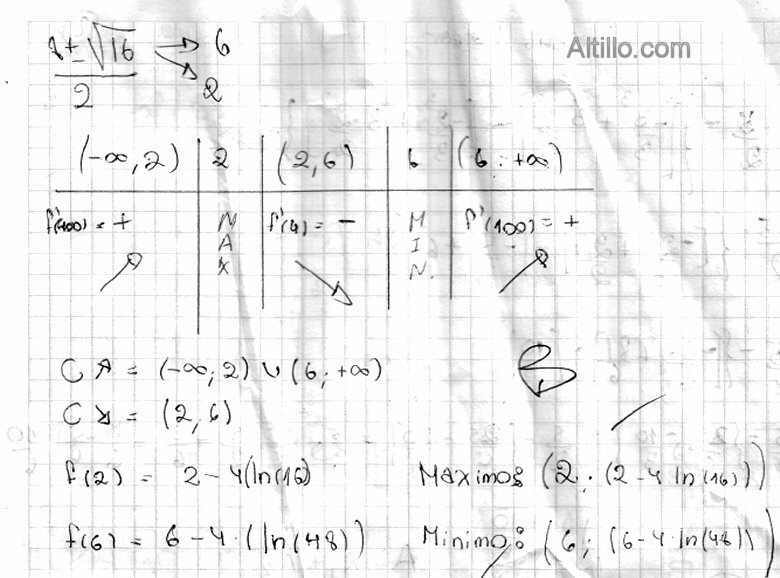 8 ± √16 → 6
Altillo.com
2 → 2
(-∞, 2) 2 (2, 6) 6 (6; +∞)
f'(-100) = + MAX f'(4) = - MIN. f'(100) = +
C ↗ = (-∞; 2) ∪ (6; +∞)
C ↘ = (2, 6)
f(2) = 2 - 4(ln(16) Maximo: (2; (2 - 4 ln(16)))
f(6) = 6 - 4 · (ln(48)) Minimo: (6; (6 - 4 · ln(48)))